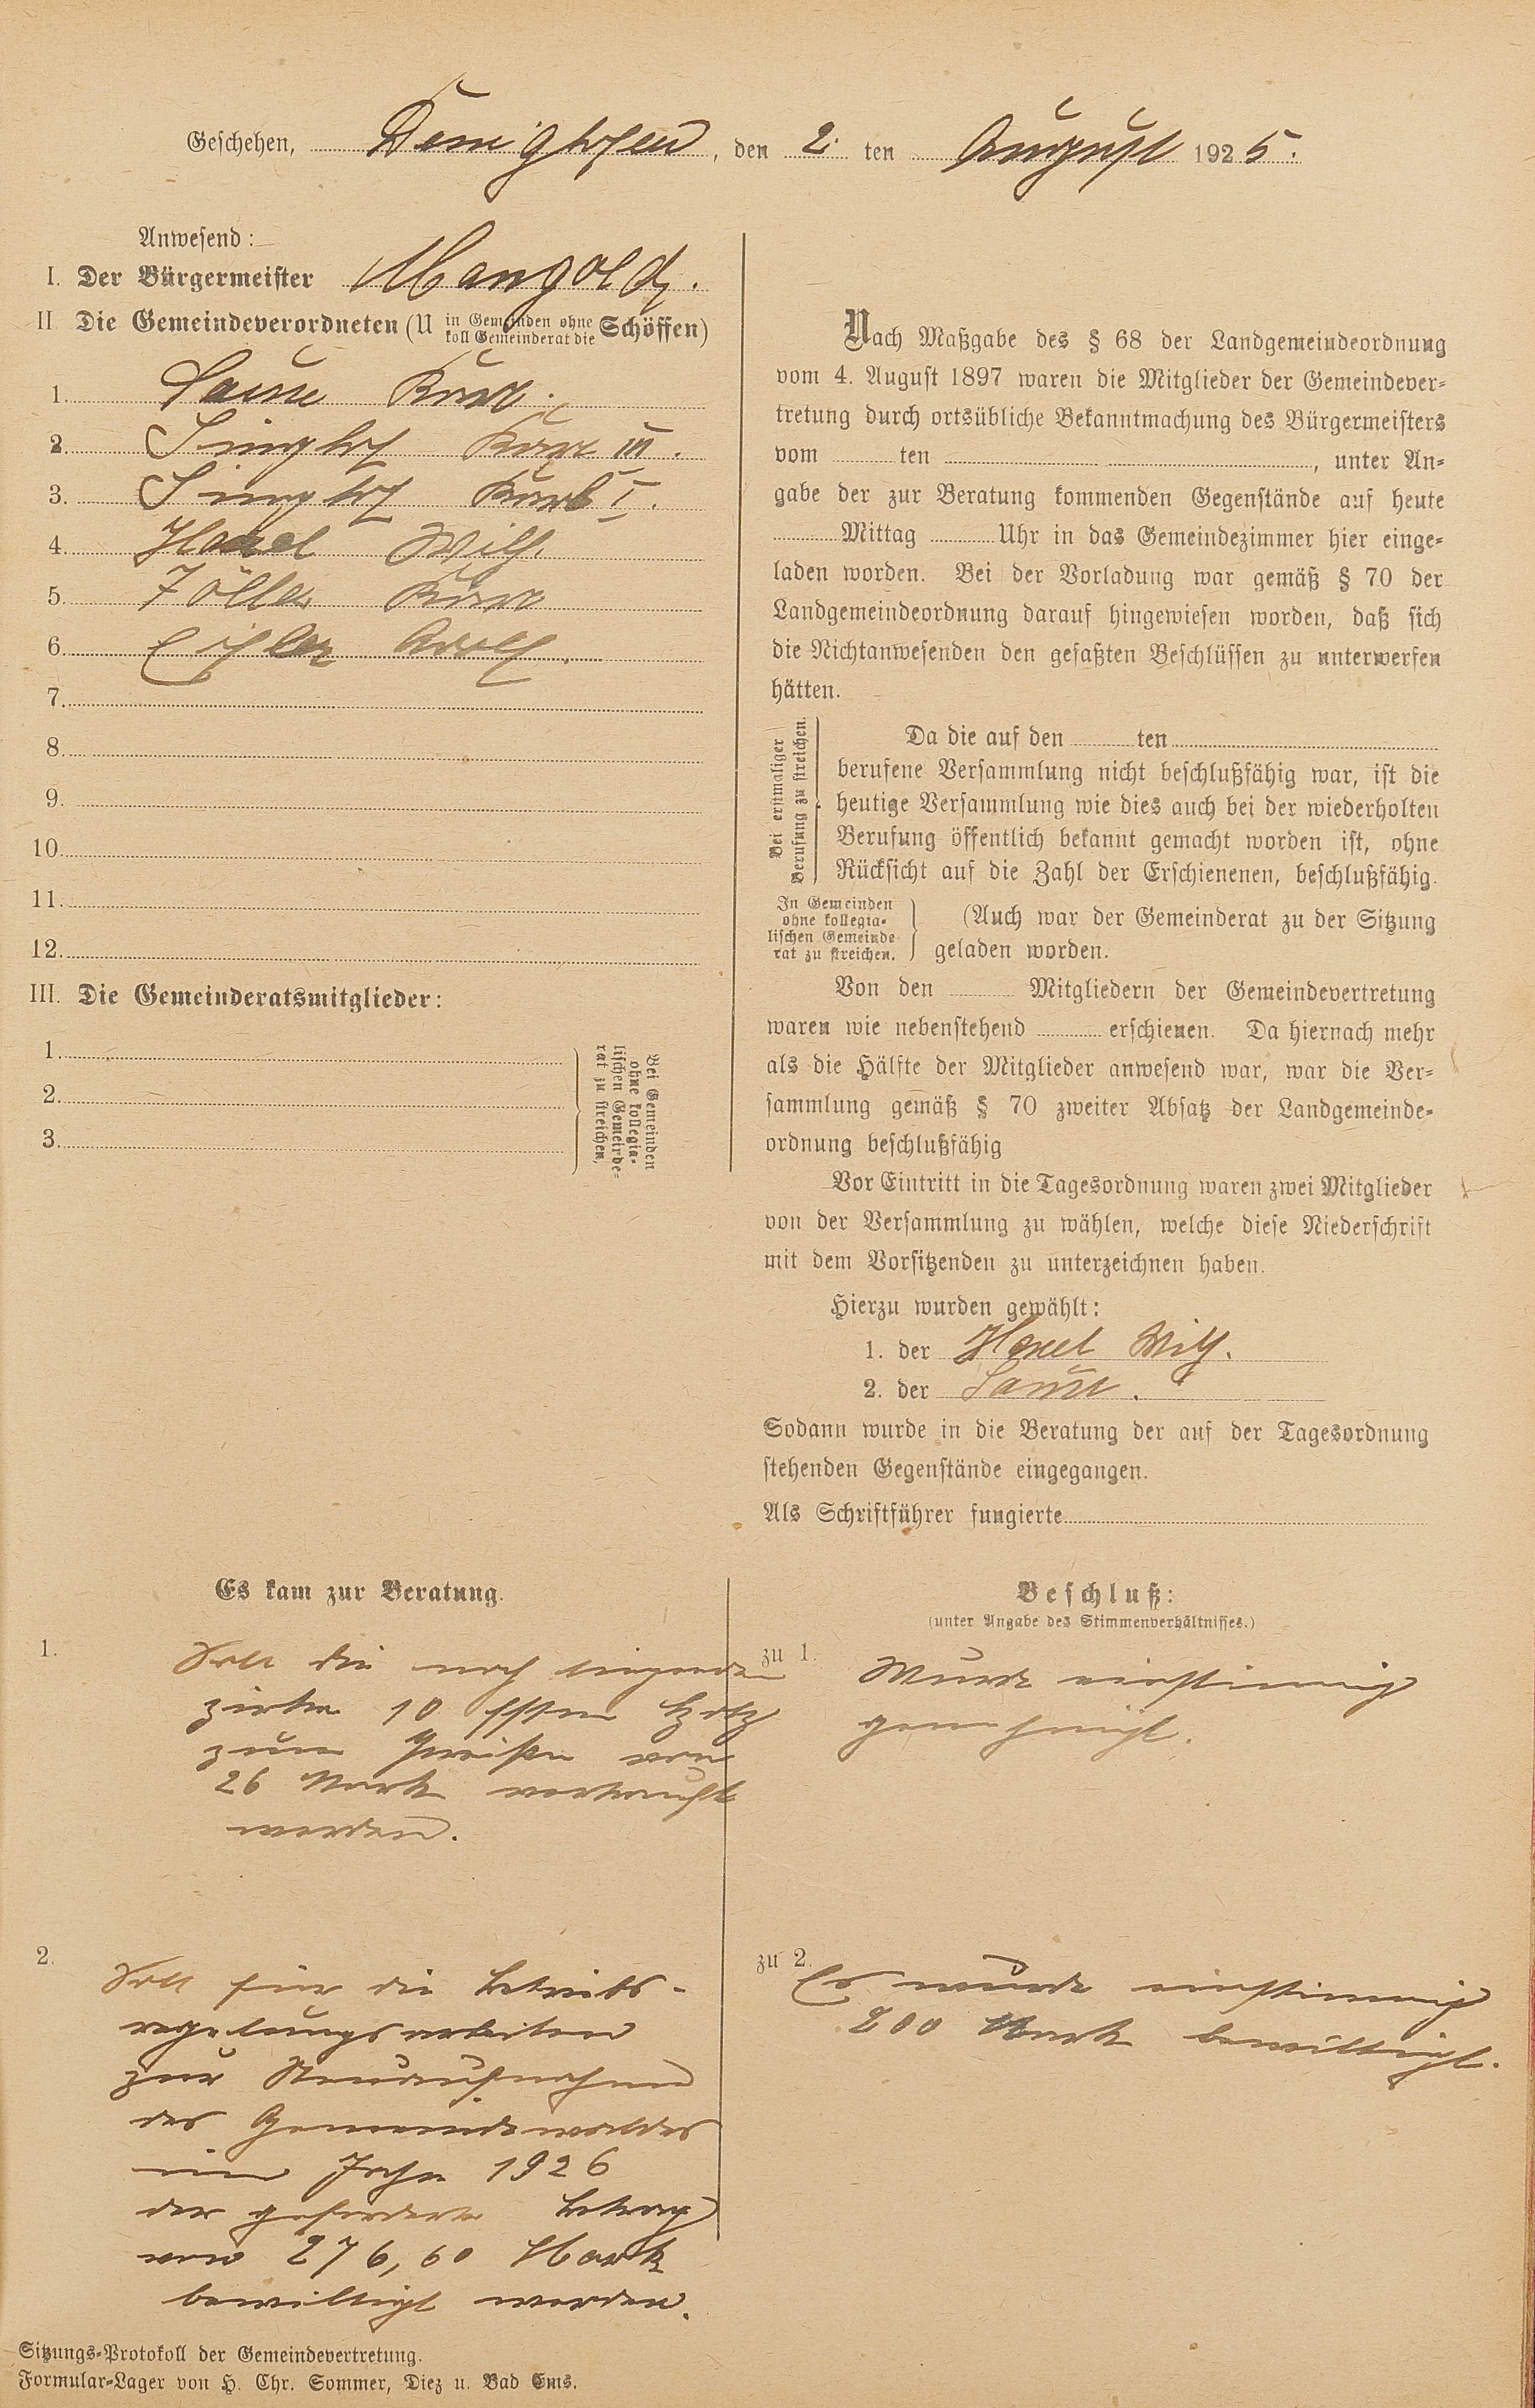 Geschehen, Denighofen, den 2. ten August 1925.
Anwesend:
I. Der Bürgermeister Mangold.
II Die Gemeindeverordneten (U in Gemeinden ohne koll Gemeinderat die Schöffen)
1. Karl.
2. Singhof Karl III.
3. Singhof Karl I.
4. Hasel Wilh.
5. Zöller Karl
6. Eisler Adolf.
7.
8.
9.
10.
11.
12.
III. Die Gemeinderatsmitglieder:
1.
2.
3.
Bei Gemeinden
ohne kollegia-
lischen Gemeinde-
rat zu streichen.
Nach Maßgabe des § 68 der Landgemeindeordnung
vom 4. August 1897 waren die Mitglieder der Gemeindever-
tretung durch ortsübliche Bekanntmachung des Bürgermeisters
vom ten , unter An-
gabe der zur Beratung kommenden Gegenstände auf heute
Mittag Uhr in das Gemeindezimmer hier einge-
laden worden. Bei der Vorladung war gemäß § 70 der
Landgemeindeordnung darauf hingewiesen worden, daß sich
die Nichtanwesenden den gefaßten Beschlüssen zu unterwerfen
hätten.
Bei erstmaliger
Berufung zu streichen.
Da die auf den ten
berufene Versammlung nicht beschlußfähig war, ist die
heutige Versammlung wie dies auch bei der wiederholten
Berufung öffentlich bekannt gemacht worden ist, ohne
Rücksicht auf die Zahl der Erschienenen, beschlußfähig.
In Gemeinden
ohne kollegia-
lischen Gemeinde-
rat zu streichen.
(Auch war der Gemeinderat zu der Sitzung
geladen worden.
Von den Mitgliedern der Gemeindevertretung
waren wie nebenstehend erschienen. Da hiernach mehr
als die Hälfte der Mitglieder anwesend war, war die Ver-
sammlung gemäß § 70 zweiter Absatz der Landgemeinde-
ordnung beschlußfähig
Vor Eintritt in die Tagesordnung waren zwei Mitglieder
von der Versammlung zu wählen, welche diese Niederschrift
mit dem Vorsitzenden zu unterzeichnen haben.
Hierzu wurden gewählt:
1. der Hasel Wilh.
2. der
Sodann wurde in die Beratung der auf der Tagesordnung
stehenden Gegenstände eingegangen.
Als Schriftführer fungierte
Es kam zur Beratung.
1. Soll die noch liegenden
zirka 10 Holz
zum Preise von
26 Mark verkauft
werden.
2. Soll für die Betriebs-
regelungsarbeiten
zur Neuaufnahme
des Gemeindewaldes
im Jahr 1926
der geforderte Betrag
von 276,60 Mark
bewilligt werden.
Beschluß:
(unter Angabe des Stimmenverhältnisses.)
zu 1. Wurde einstimmig
genehmigt.
zu 2. Es wurde einstimmig
200 Mark bewilligt.
Sitzungs-Protokoll der Gemeindevertretung.
Formular-Lager von H. Chr. Sommer, Diez u. Bad Ems.